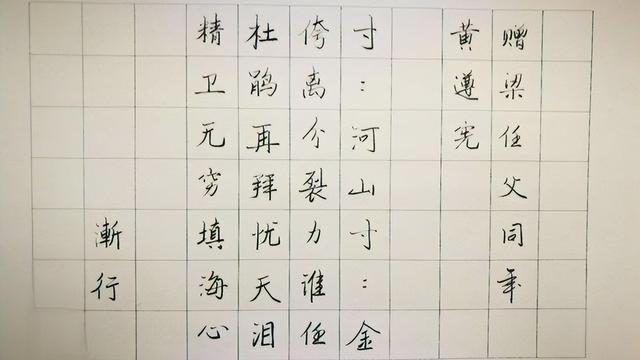 赠梁任父同年
黄遵宪
寸：河山寸：金
侉离分裂力谁任
杜鹃再拜忧天泪
精卫无穷填海心
漸行